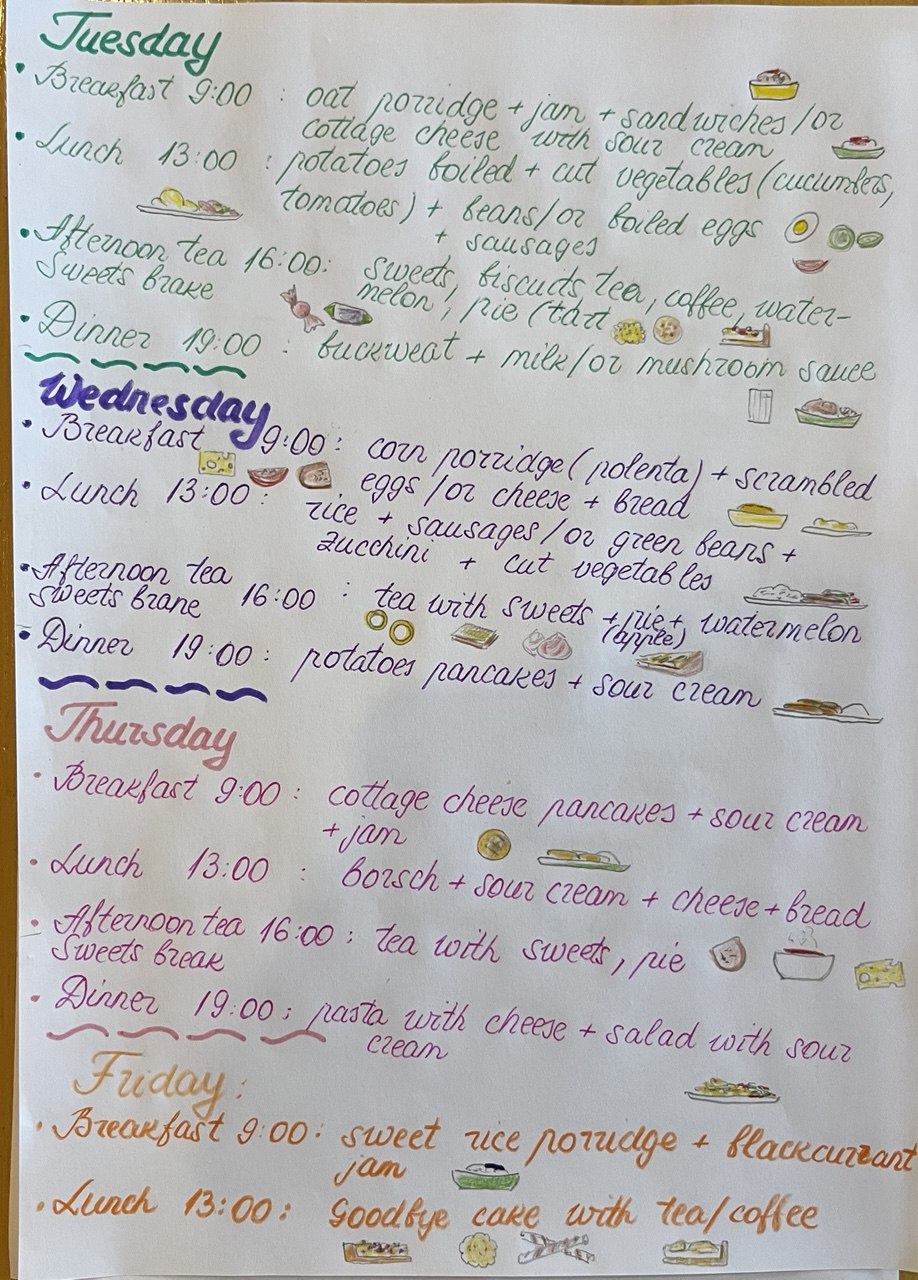 Tuesday
• Breakfast 9:00 : oat porridge + jam + sandwiches/or
cottage cheese with sour cream
• Lunch 13:00 : potatoes boiled + cut vegetables (cucumbers,
tomatoes) + beans/or boiled eggs
+ sausages
• Afternoon tea 16:00: sweets, biscuits tea, coffee, water-
Sweets brake melon, pie (tart
• Dinner 19:00 : buckweat + milk/or mushroom sauce
Wednesday
• Breakfast 9:00: corn porridge (polenta) + scrambled
eggs /or cheese + bread
• Lunch 13:00 : rice + sausages/or green beans +
zucchini + cut vegetables
• Afternoon tea 16:00 : tea with sweets + pie + watermelon
Sweets brane (apple)
• Dinner 19:00: potatoes pancakes + sour cream
Thursday
• Breakfast 9:00: cottage cheese pancakes + sour cream
+ jam
• Lunch 13:00 : borsch + sour cream + cheese + bread
• Afternoon tea 16:00: tea with sweets, pie
Sweets break
• Dinner 19:00: pasta with cheese + salad with sour
cream
Friday:
• Breakfast 9:00: sweet rice porridge + blackcurrant
jam
• Lunch 13:00: Goodbye cake with tea/coffee